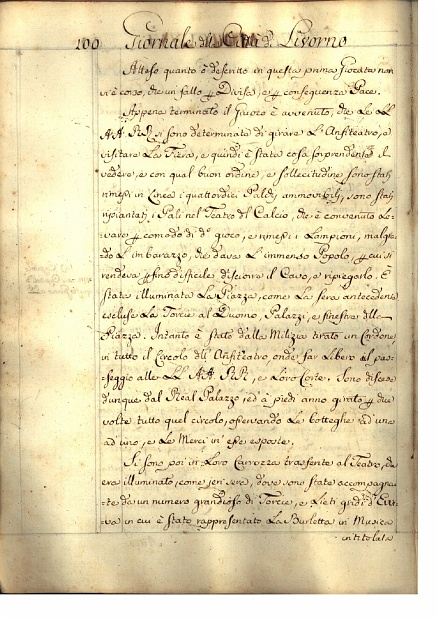 100 Giornale della Città di Livorno
Atteso quanto è descritto in questa prima Giocata non
vi è corso, che un fallo per Divisa, e per conseguenza Pace.
Appena terminato il Giuoco è avvenuto, che Le LL
AA RR si sono determinate di girare L'Anfiteatro, e
visitare La Fiera, e quindi è stata cosa sorprendente il
vedere, e con qual buon ordine, e sollecitudine sono stati
rimessi in Linea i quattordici Paldi ammovibili, sono stati
ripiantati i Pali nel Teatro del Calcio, che è convenuto Le-
vare per comodo di do. gioco, e rimessi i Lampioni, malgra-
do L'imbarazzo, che dava L'immenso Popolo, per cui si
rendeva per fino difficile di sciorre il Cavo, e ripiegarlo. È
stata illuminata La Piazza, come La sera antecedente
escluse Le Torcie al Duomo, Palazzi, e finestre della
Piazza. Intanto è stato dalla Milizia tirato un Cordone
in tutto il Circolo dell'Anfiteatro, onde far Libero il pas-
seggio alle LL AA RR, e Loro Corte. Sono discese
dunque dal Real Palazzo, ed à piedi anno girato per due
volte tutto quel circolo, osservando Le botteghe ad una
ad una, e Le Merci in esse esposte.
Si sono poi in Loro Carrozza trasferite al Teatro, che
era illuminato, come jeri sera, dove sono state accompagna-
te da un numero grandioso di Torcie, e Lieti gridi d'Evi-
va in cui è stato rappresentato La Burletta in Musica
intitolata